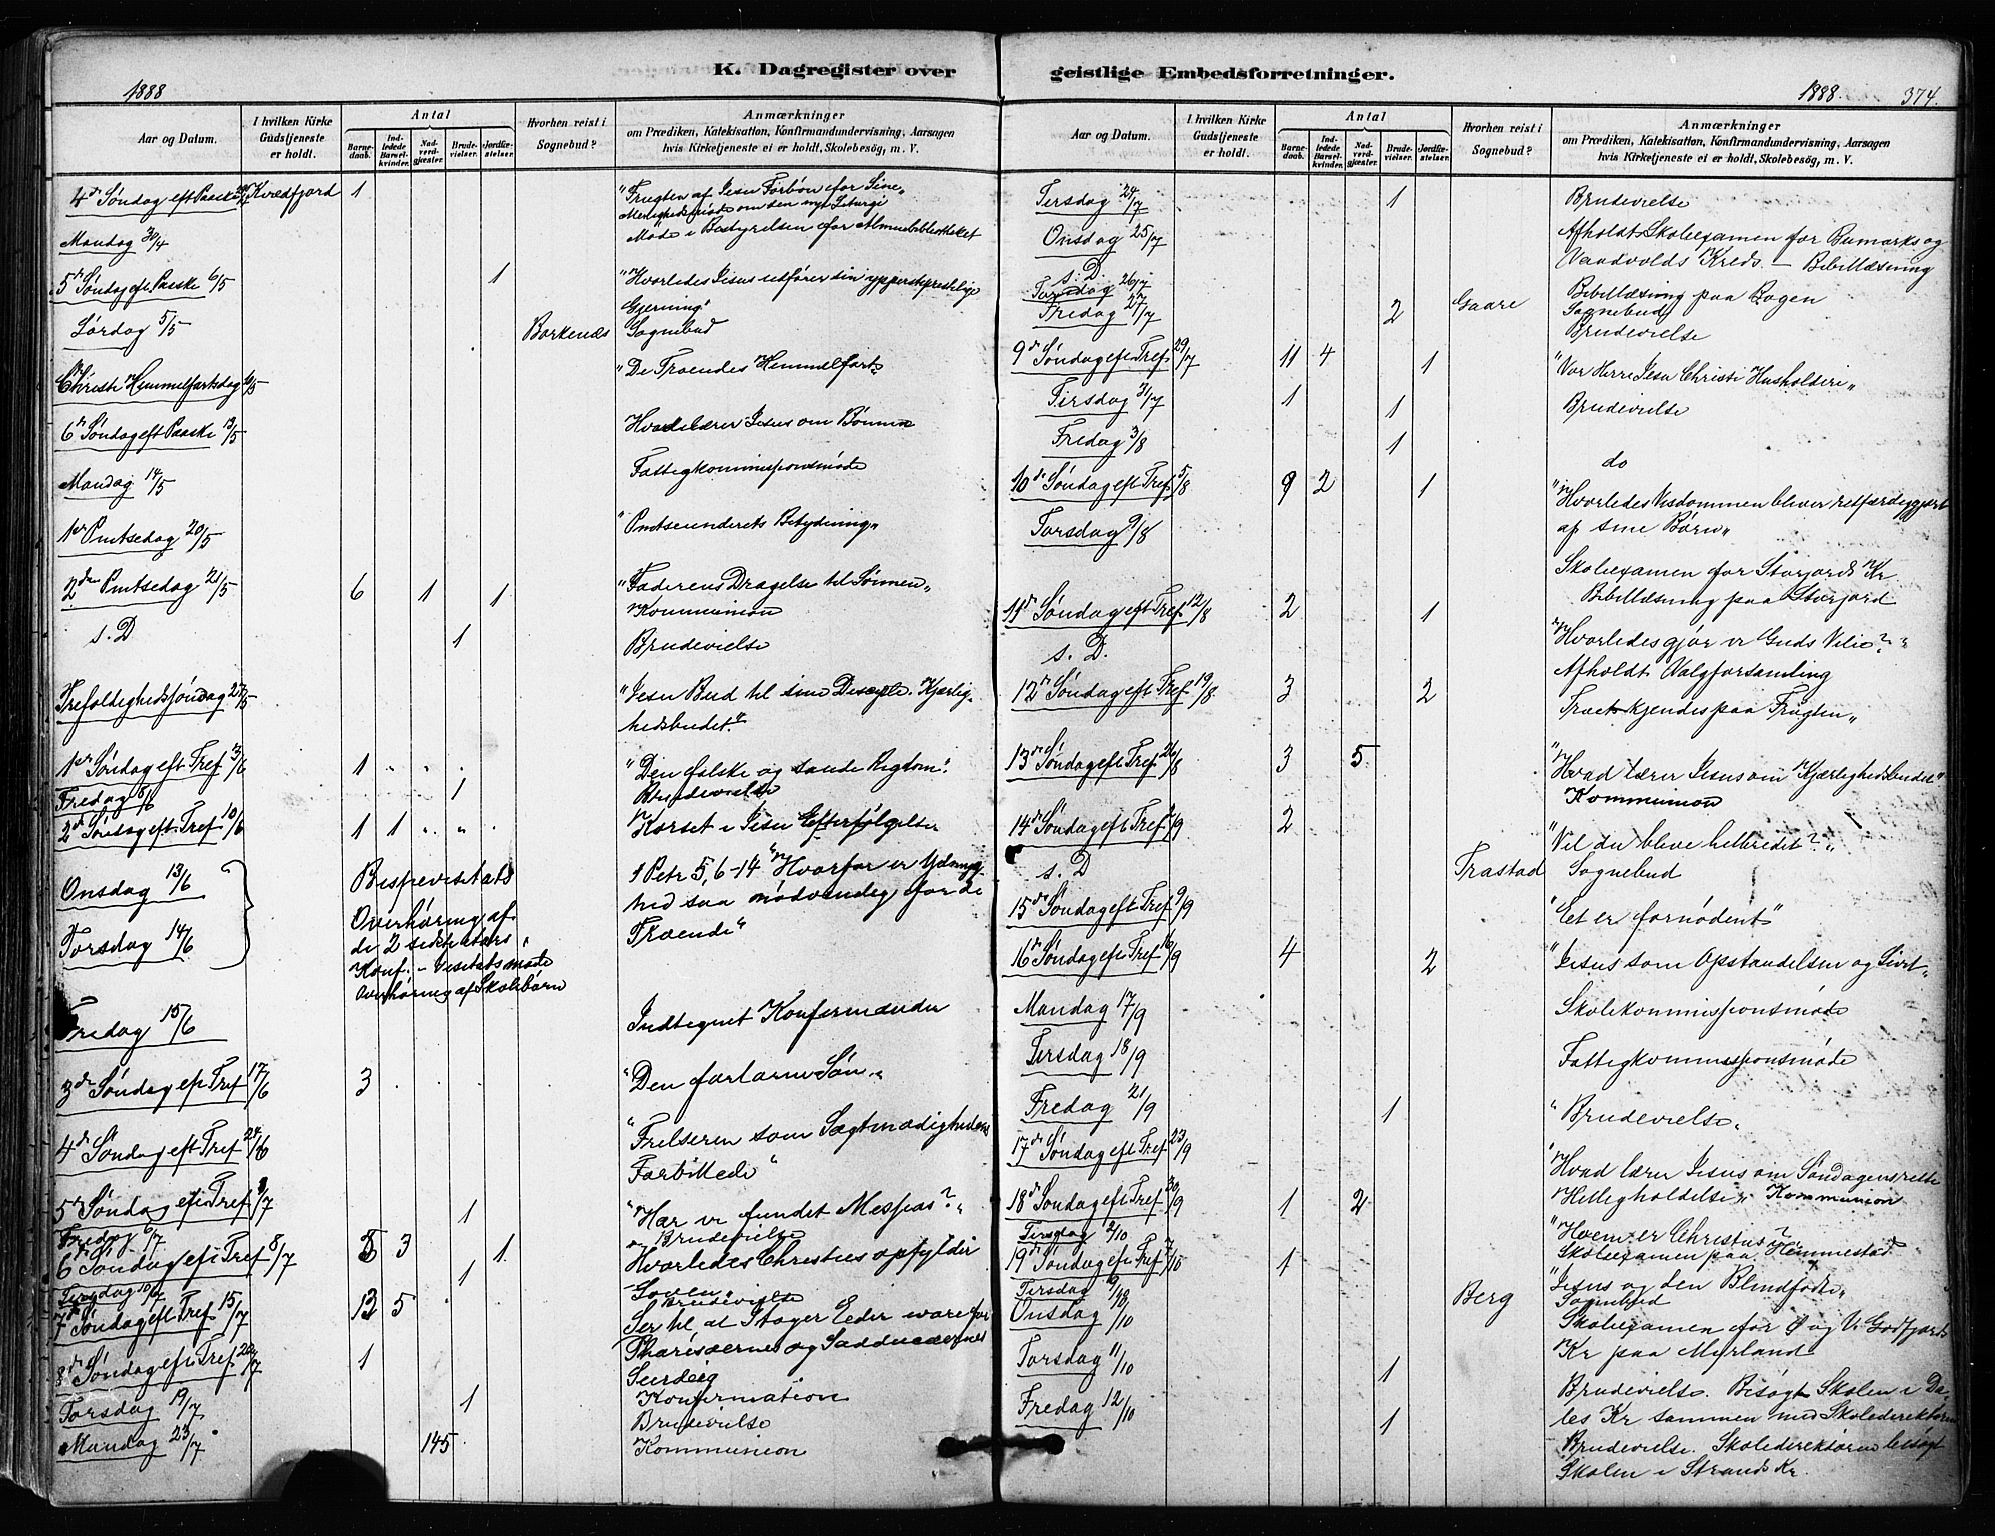 K. Dagregister over geistlige Embedsforretninger.
1888
1888.
374.
Aar og Datum.
I hvilken Kirke Gudstjeneste er holdt.
Antal
Barnedaab.
Indledede Barselkvinder.
Nadverdgjæster.
Brudevielser.
Jordfæstelser.
Hvorhen reist i Sognebud?
Anmærkninger
om Prædiken, Katekisation, Konfirmandundervisning, Aarsagen
hvis Kirketjeneste ei er holdt, Skolebesög, m. V.
4de Søndag eft Paaske 29/4 Kvædfjord 1 "Frugten af Jesu Forbøn for Sine"
Menighedsmøde om den nye Liturgi
Mandag 30/4 Møde i Bestyrelsen for Almuebibliotheket
5te Søndag eft. Paaske 6/5 1 "Hvorledes Jesus udfører sin ypperstepræstelige
Gjerning"
Lørdag 5/5 Borkenæs Sognebud
Christi Himmelfartsdag 10/5 "De Troendes Himmelfart"
6te Søndag eft Paaske 13/5 Hvad lærer Jesus om Bønnen
Mandag 14/5 Fattigkommissionsmøde
1ste Pintsedag 20/5 "Pintseunderets Betydning"
2den Pintsedag 21/5 6 1 1 "Faderens Dragelse til Sønnen"
Kommunion
s. D 1 Brudevielse
Trefoldighedssøndag 27/5 "Jesu Bud til sine Disciple. Kjærlig-
hedsbudet"
1ste Søndag eft Tref 3/6 1 "Den falske og sande Rigdom".
Fredag 8/6 1 Brudevielse
2den Søndag eft Tref 10/6 1 1 Korset i Jesu Efterfølgelse
Onsdag 13/6 Bispevisitats 1 Petr 5, 6-14 "Hvorfor er Ydmyg-
hed saa nødvendig for de
Torsdag 14/6 Overhøring af
de 2 sidste Aars Troende"
Konf. - Visitatsmøde
Overhøring af Skolebørn
Fredag 15/6 Indtegnet Konfirmander
3die Søndag eft Tref 17/6 3 "Den fortabte Søn"
4de Søndag eft Tref 24/6 "Frelseren som Sagtmodighedens
Forbillede"
5te Søndag eft Tref 1/7 1 "Har vi fundet Messias?"
Fredag 6/7 Brudevielse
6te Søndag eft Tref 8/7 3 1 Hvorledes Christus opfylder
Loven"
Tirsdag 10/7 1 Brudevielse
7de Søndag eft Tref 15/7 13 5 Ser til, at I tager Eder vare for
Pharisæernes og Sadducæernes
Surdeig
8de Søndag eft Tref 22/7 1 Konfirmation
Torsdag 19/7 1 Brudevielse
Mandag 23/7 145 Kommunion
Aar og Datum.
I hvilken Kirke Gudstjeneste er holdt.
Antal
Barnedaab.
Indledede Barselkvinder.
Nadverdgjæster.
Brudevielser.
Jordfæstelser.
Hvorhen reist i Sognebud?
Anmærkninger
om Prædiken, Katekisation, Konfirmandundervisning, Aarsagen
hvis Kirketjeneste ei er holdt, Skolebesög, m. V.
Tirsdag 24/7 1 Brudevielse
Onsdag 25/7 Afholdt Skoleexamen for Bumarks og
Vandvolds Kreds. - Bibellæsning
s. D.
Torsdag 26/7 Bibellæsning paa Bogen
Fredag 27/7 2 Gaare Sognebud
Brudevielse
9de Søndag eft Tref 29/7 11 4 1 "Vor Herre Jesu Christi Husholdere"
Tirsdag 31/7 1 1 Brudevielse
Fredag 3/8 1 do
10de Søndag eft Tref 5/8 9 2 1 "Hvorledes Visdommen bliver retfærdiggjort
af sine Børn"
Torsdag 9/8 Skoleexamen for Storjords Kr
Bibellæsning paa Storjord
11te Søndag eft Tref 12/8 2 1 "Hvorledes gjør vi Guds Vilie?"
s. D. Afholdt Valgforsamling
12te Søndag eft Tref 19/8 3 2 Træet kjendes paa Frugten"
13de Søndag eft Tref 26/8 3 5 "Hvad lærer Jesus om Kjærlighedsbudet"
Kommunion
14de Søndag eft Tref 2/9 2 "Vil du blive helbredet?"
s. D Trastad Sognebud
15de Søndag eft Tref 9/9 "Et er fornødent"
16de Søndag eft Tref 16/9 4 2 "Jesus som Opstandelsen og Livet"
Mandag 17/9 Skolekommissionsmøde
Tirsdag 18/9 Fattigkommissionsmøde
Fredag 21/9 1 Brudevielse
17de Søndag eft Tref 23/9 "Hvad lærer Jesus om Søndagens rette
Helligholdelse" Kommunion
18de Søndag eft Tref 30/9 1 2 "Hvem er Christus?
Tirsdag 2/10 Skoleexamen paa Hemmestad
19de Søndag eft Tref 7/10 1 "Jesus og den Blindfødte"
Tirsdag 9/10 Berg Sognebud
Onsdag 10/10 Skoleexamen for Ø og V. Godfjords
Kr paa Myrland
Torsdag 11/10 1 Brudevielse. Besøgt Skolen i Da-
les Kr sammen med Skoledirektøren
Fredag 12/10 1 Brudevielse. Skoledirektøren besøgt
Skolen i Strands Kr.